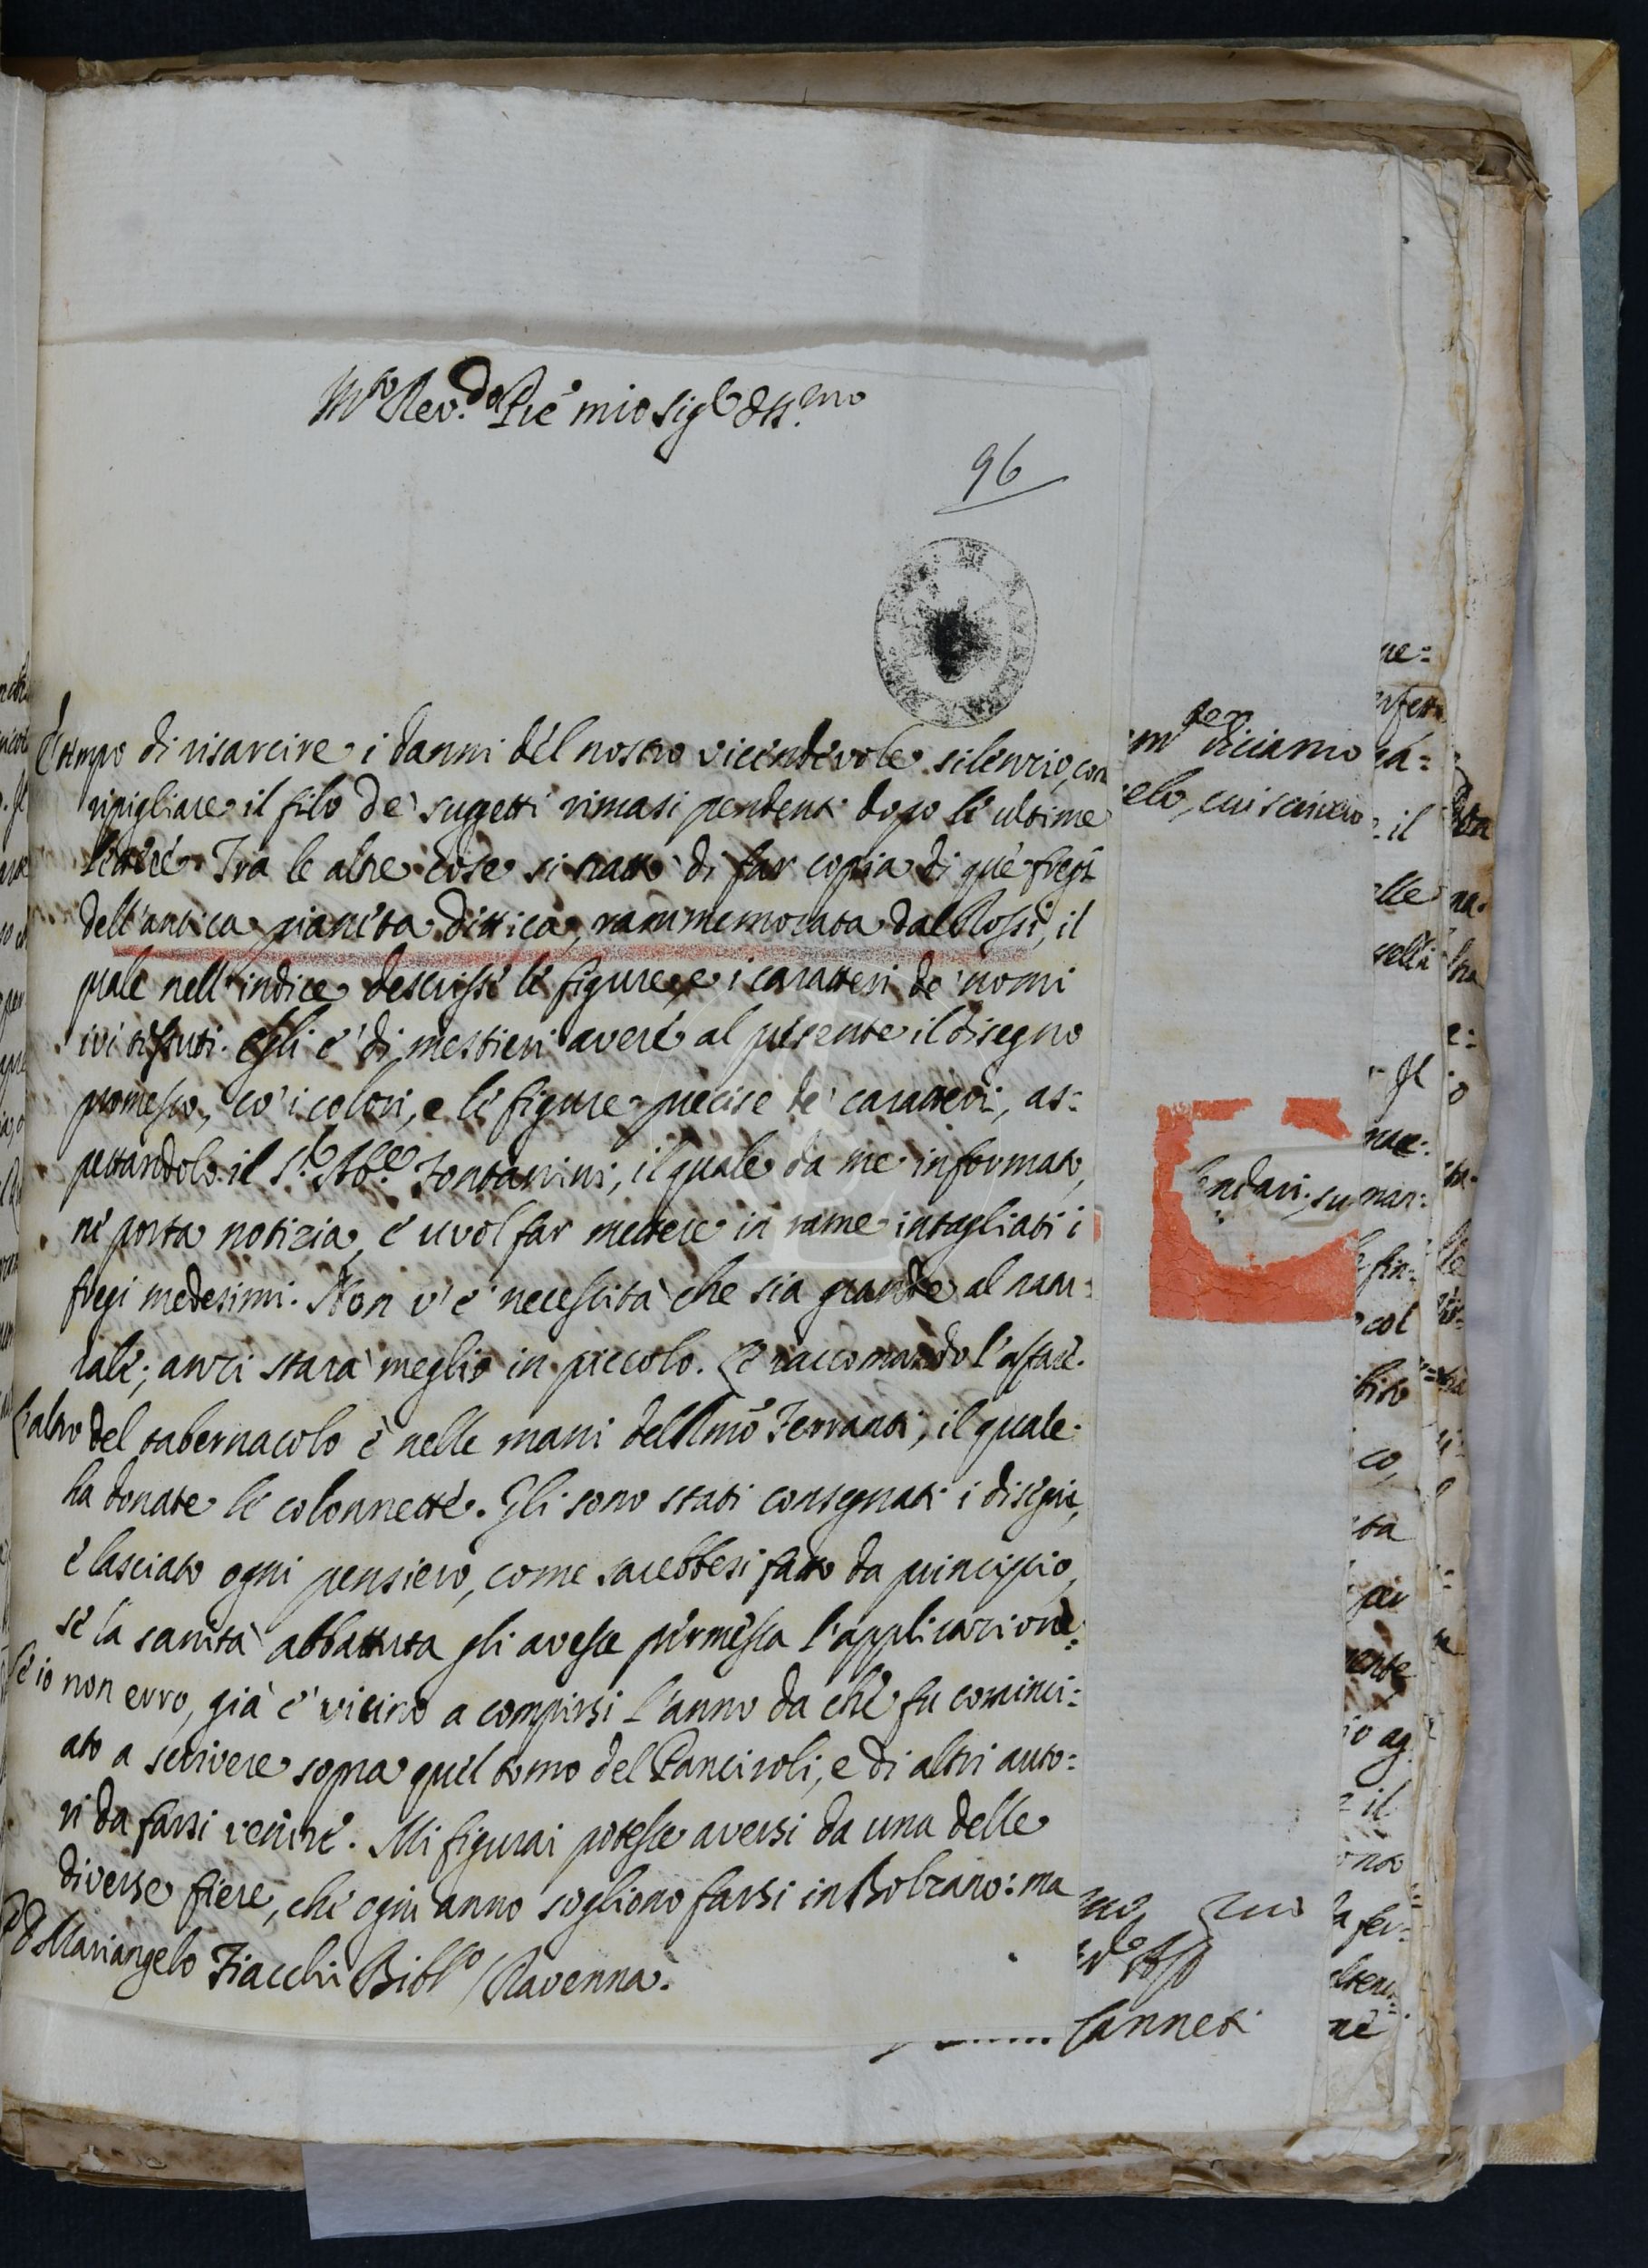 M.to Rev.do P.re mio Sig.r Oss.mo
96
È tempo di risarcire i danni del nostro vicendevole silenzio, con
ripigliare il filo de' suggetti rimasi pendenti dopo le ultime
lettere. Tra le altre cose si trattò di far copia di que' fregi
dell'antica pianeta dittica, rammemorata dal Rossi, il
quale nell'indice descrisse le figure, e i caratteri de' nomi
ivi tessuti. Egli è di mestieri avere al presente il disegno
promesso, co' i colori, e le figure precise de' caratteri, as=
pettandolo il S.r Ab.e Fontanini, il quale da me informato,
ne porta notizia, e vuol far mettere in rame intagliati i
fregi medesimi. Non v'è necessità che sia grande al natu=
rale; anzi starà meglio in piccolo. Le raccomando l'affare.
L'altro del tabernacolo è nelle mani del Rmo Ferranti, il quale
ha donate le colonnette. Gli sono stati consegnati i disegni,
e lasciato ogni pensiero, come sarebbesi fatto da principio,
se la sanità abbattuta gli avesse permessa l'applicazione.
Se io non erro, già è vicino a compirsi l'anno da che fu cominci=
ato a scrivere sopra quel tomo del Panciroli, e di altri auto=
ri da farsi venire. Mi figurai potesse aversi da una delle
diverse fiere, che ogni anno sogliono farsi in Bolzano: ma
P. D. Mariangelo Fiacchi Bibl.o Ravenna.
diciamo
elo, cui scrivero
endari, su
Canneti